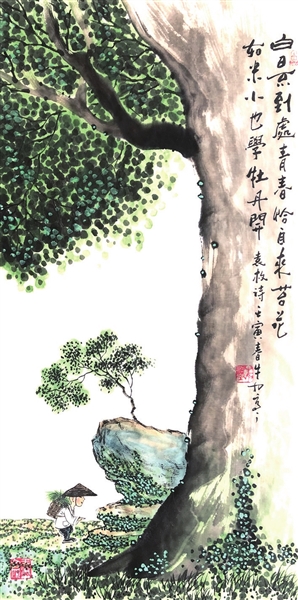 白日到處青春恰自來苔花
如米小也學牡丹開 袁枚詩 壬寅春牛